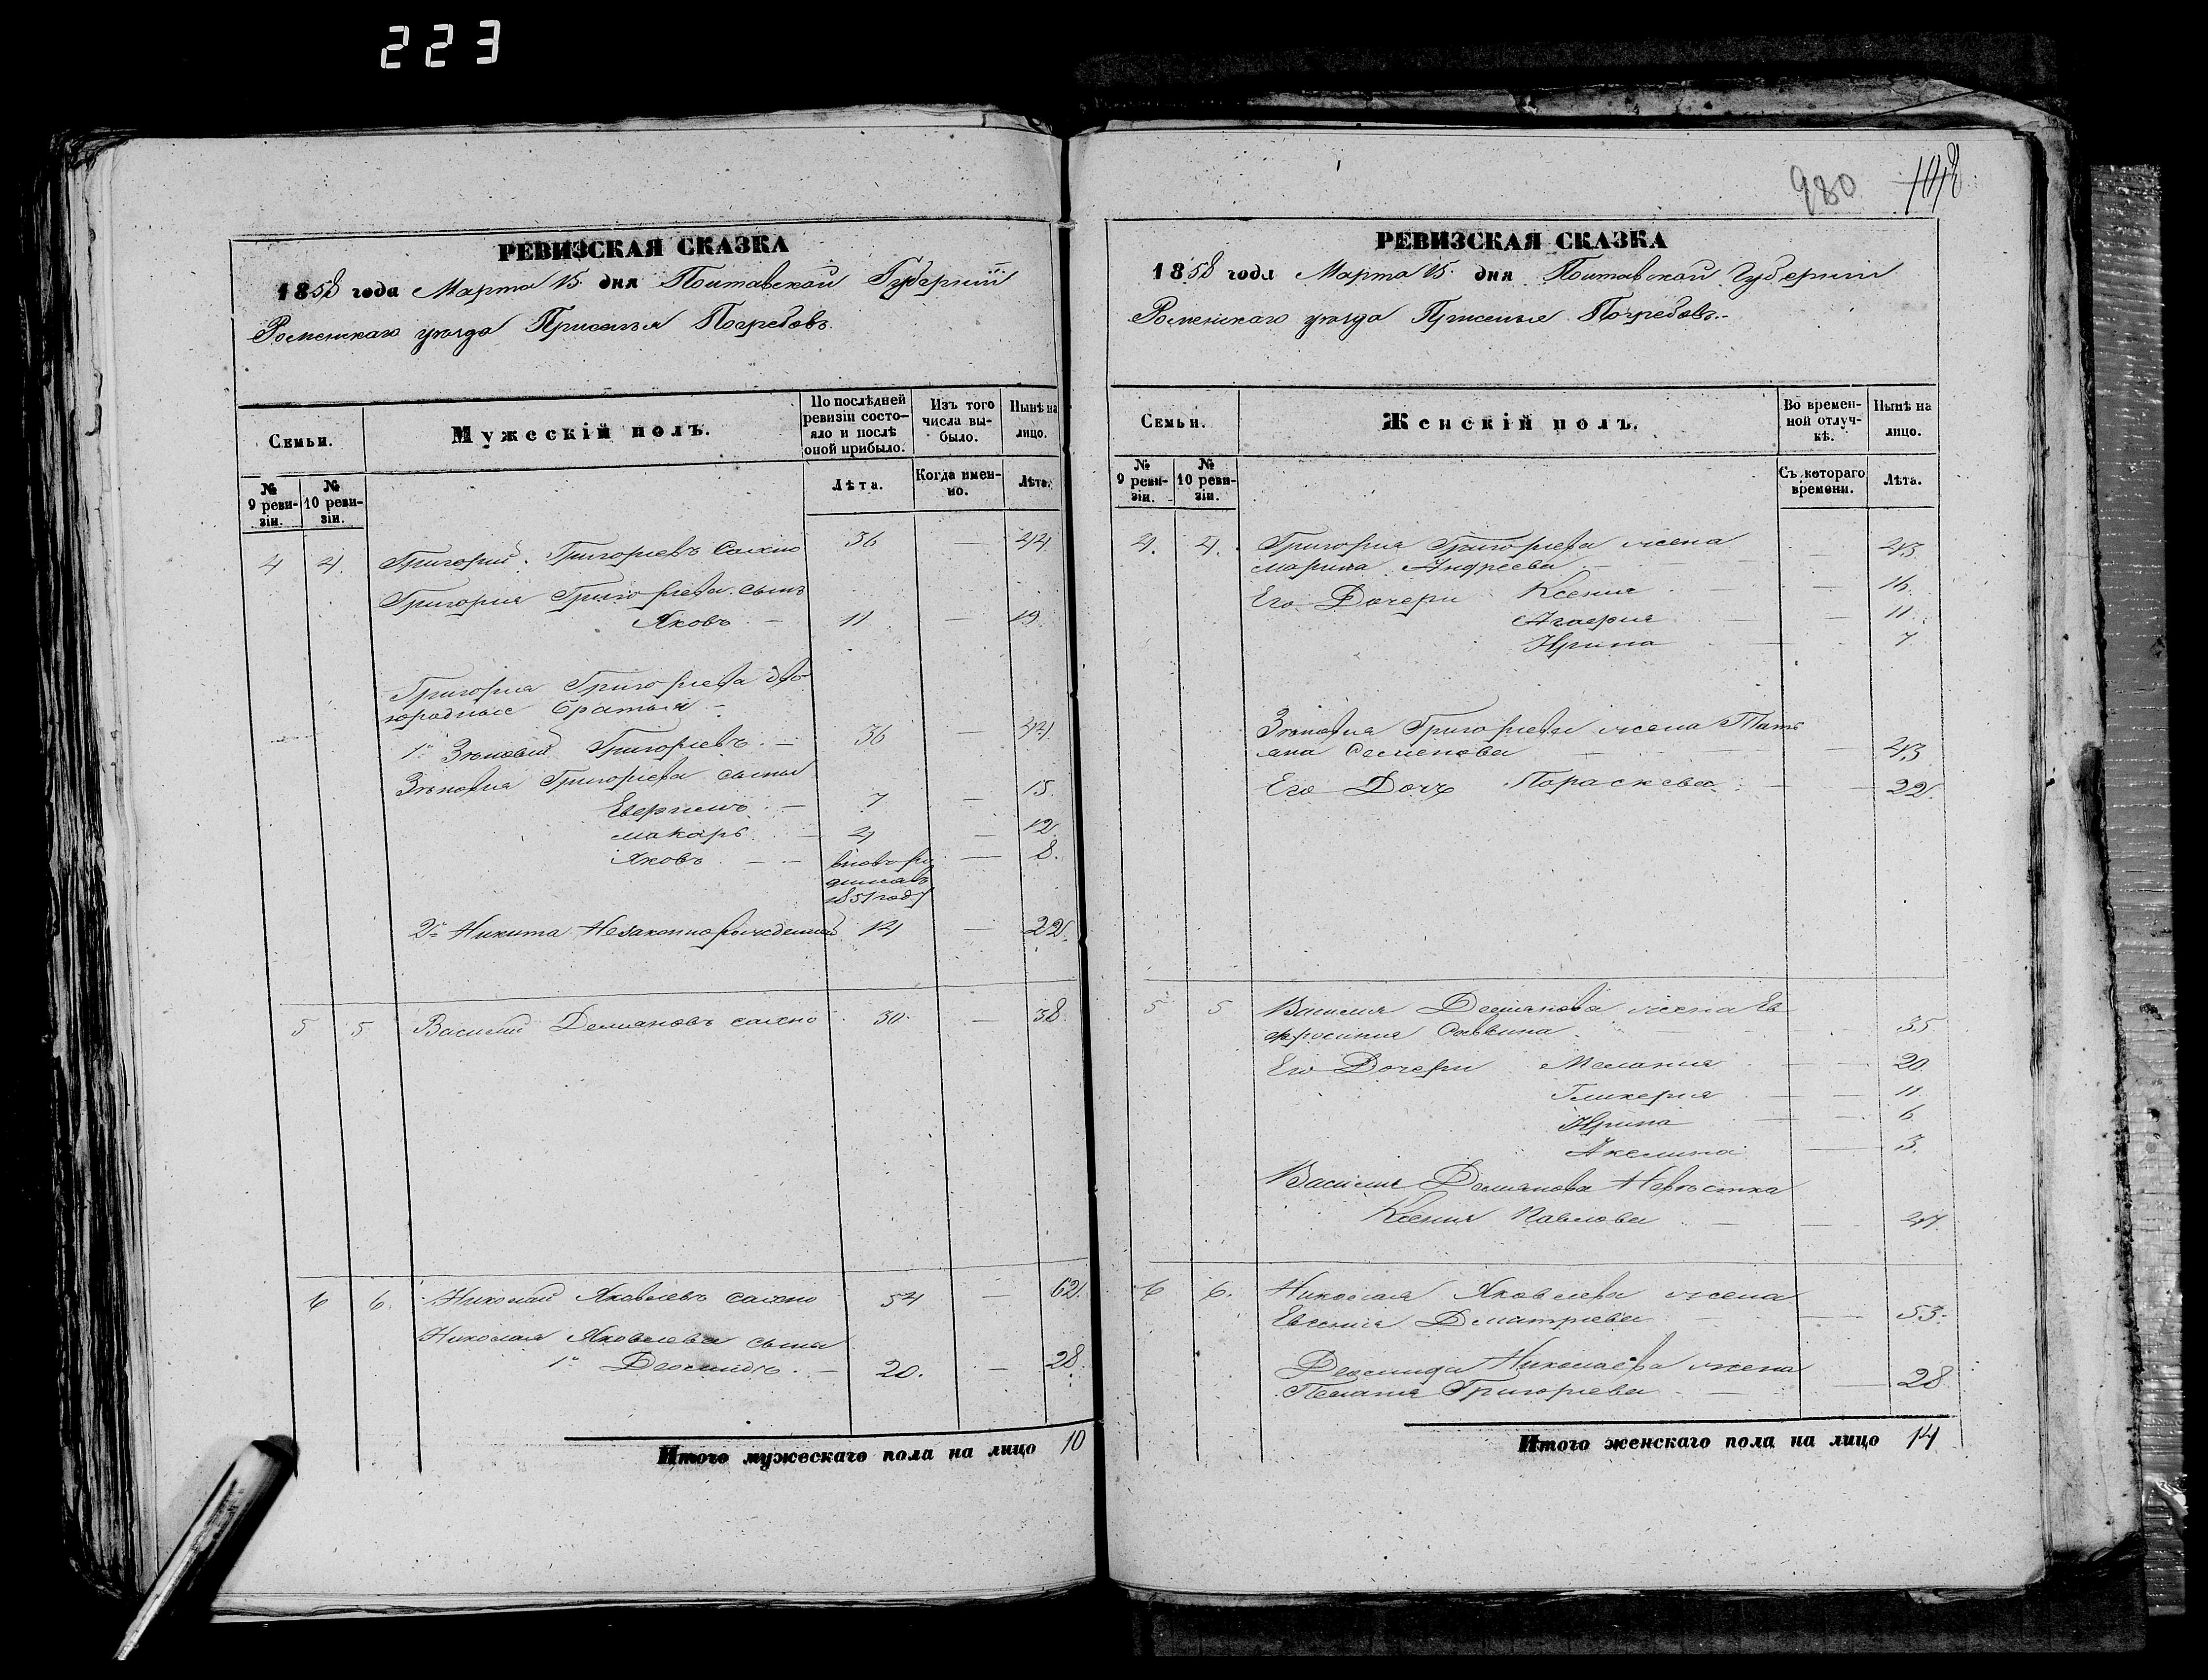 223
РЕВИЗСКАЯ СКАЗКА
1858 года Марта 15 дня Полтавской Губерніи
Роменскаго уѣзда Приселья Погребовъ.
Семьи.
Мужескій полъ.
По послѣдней ревизіи состо-
яло и послѣ оной прибыло.
Изъ того числа вы-
было.
Нынѣ на лицо.
№ 9 реви-
зіи.
№ 10 реви-
зіи.
Лѣта.
Когда имен-
но.
Лѣта.
4 4. Григорий Григорьевъ Сахно 36 — 44.
Григорія Григорьева сынъ
Яковъ — 11 — 19.
Григорія Григорьева дво-
юродные братья —
1й Зѣновий Григорьевъ — 36 — 44.
Зѣновія Григорьева сыны
Евфимъ — 7 — 15.
Макаръ — 4 — 12.
Яковъ — — вновь ро — 8.
дился въ
1851 году
2й Никита Незаконнорожденный 14 — 22.
5 5 Василий Демяновъ Сахно 30 — 38.
6 6. Николай Яковлевъ Сахно 54 — 62.
Николая Яковлева сыны
1й Леонидъ — 20. — 28.
Итого мужескаго пола на лицо 10
980 1018
РЕВИЗСКАЯ СКАЗКА
1858 года Марта 15 дня Полтавской Губерніи
Роменскаго уѣзда Приселья Погребовъ.-
Семьи.
Женскій полъ.
Во времен-
ной отлуч-
кѣ.
Нынѣ на лицо.
№ 9 реви-
зіи.
№ 10 реви-
зіи.
Съ котораго времени.
Лѣта.
4. 4. Григорія Григорьева жена
Марина Андреева — 43.
Его Дочери Ксенія — 16.
Агафія — 11.
Ирина — 7
Зѣновія Григорьева жена Тать
яна Семенова — 43
Его Дочь Параскева — 22.
5 5 Василія Демянова жена Ев
фросинія Саввина — 35
Его Дочери Меланія — 20
Гликерія — 11
Ирина — 6
Акелина — 3.
Василія Демянова Невѣстка
Ксенія Павлова — 47.
6 6. Николая Яковлева жена
Евгенія Дматріева — 53.
Леонида Николаева жена
Пелагія Григорьева — 28
Итого женскаго пола на лицо 14